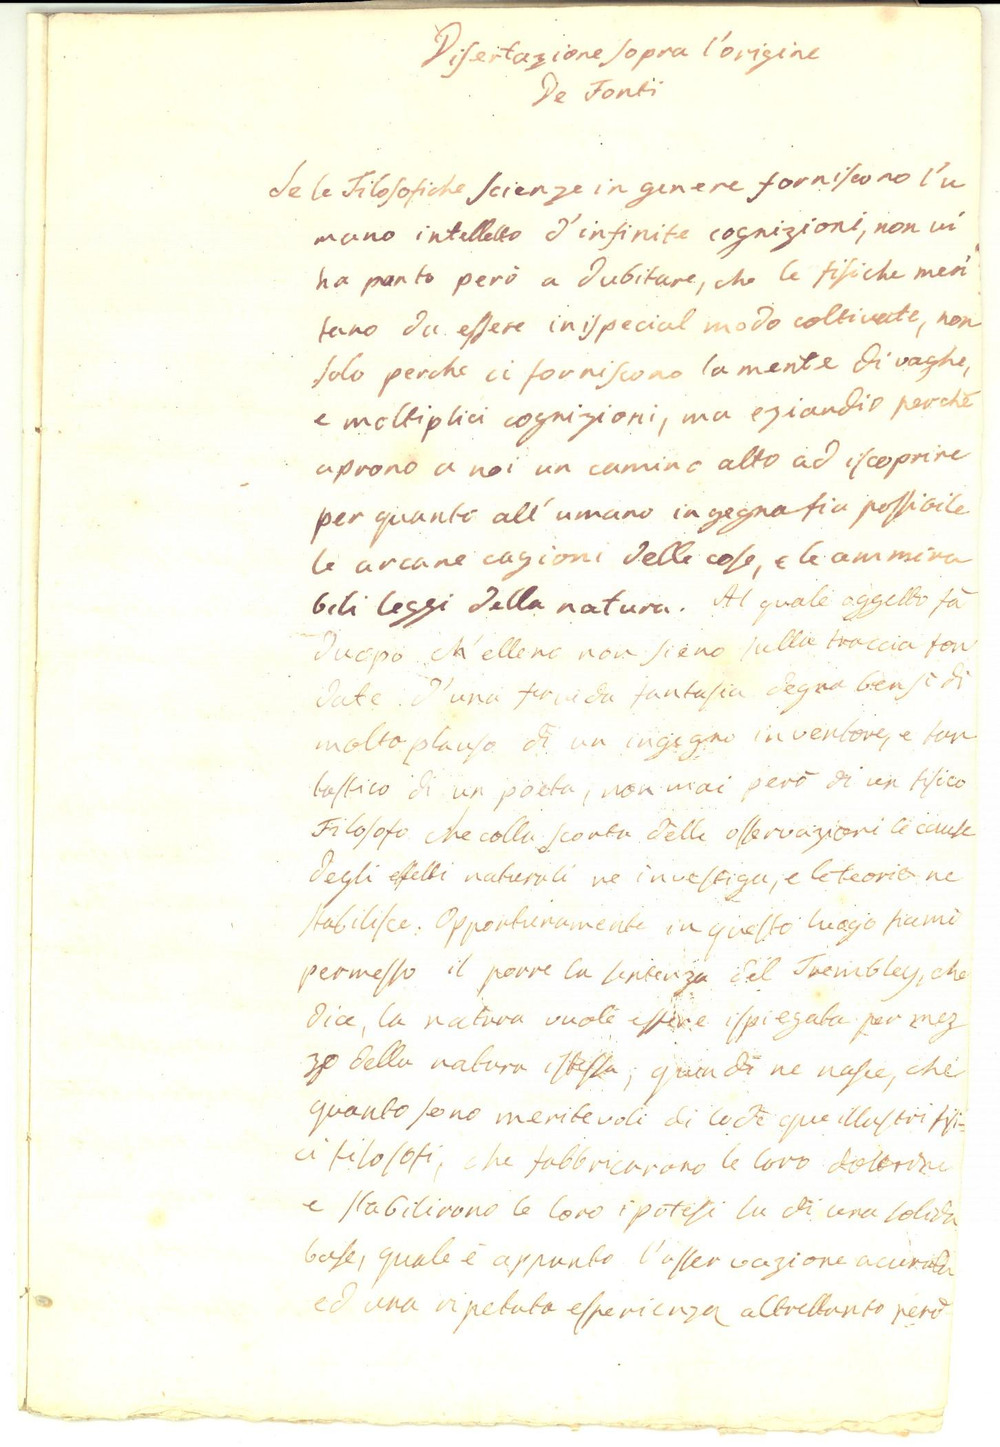 Disertazione sopra l'origine
De Fonti
Se le Filosofiche scienze in genere forniscono l'u
mano intelletto d'infinite cognizioni, non vi
ha punto però a dubitare, che le fisiche meri
tano da essere inispecial modo coltivate, non
solo perche ci forniscono la mente di vaghe,
e moltiplici cognizioni, ma eziandio perchè
aprono a noi un camino alto ad iscoprire
per quanto all'umano ingegno fia possibile
le arcane cagioni delle cose, e le ammira
bili leggi della natura. Al quale oggetto fà
duopo ch'elleno non sieno sulla traccia fon
date d'una fervida fantasia degna bensì di
molto plauso di un ingegno inventore, e fan
tastico di un poeta, non mai però di un fisico
Filosofo che colla scorta delle osservazioni le cause
degli effetti naturali ne investiga, e le teorie ne
stabilisce. Opportunamente in questo luogo siami
permesso il porre la sentenza del Trembley, che
dice, la natura vuole essere ispiegata per mez
zo della natura istessa; quindi ne nasce, che
quanto sono meritevoli di lode que illustri fisi-
ci filosofi, che fabbricarono le loro dottrine
e stabilirono le loro ipotesi su di una solida
base, quale è appunto l'osservazione acurata
ed una ripetuta esperienza altrettanto però